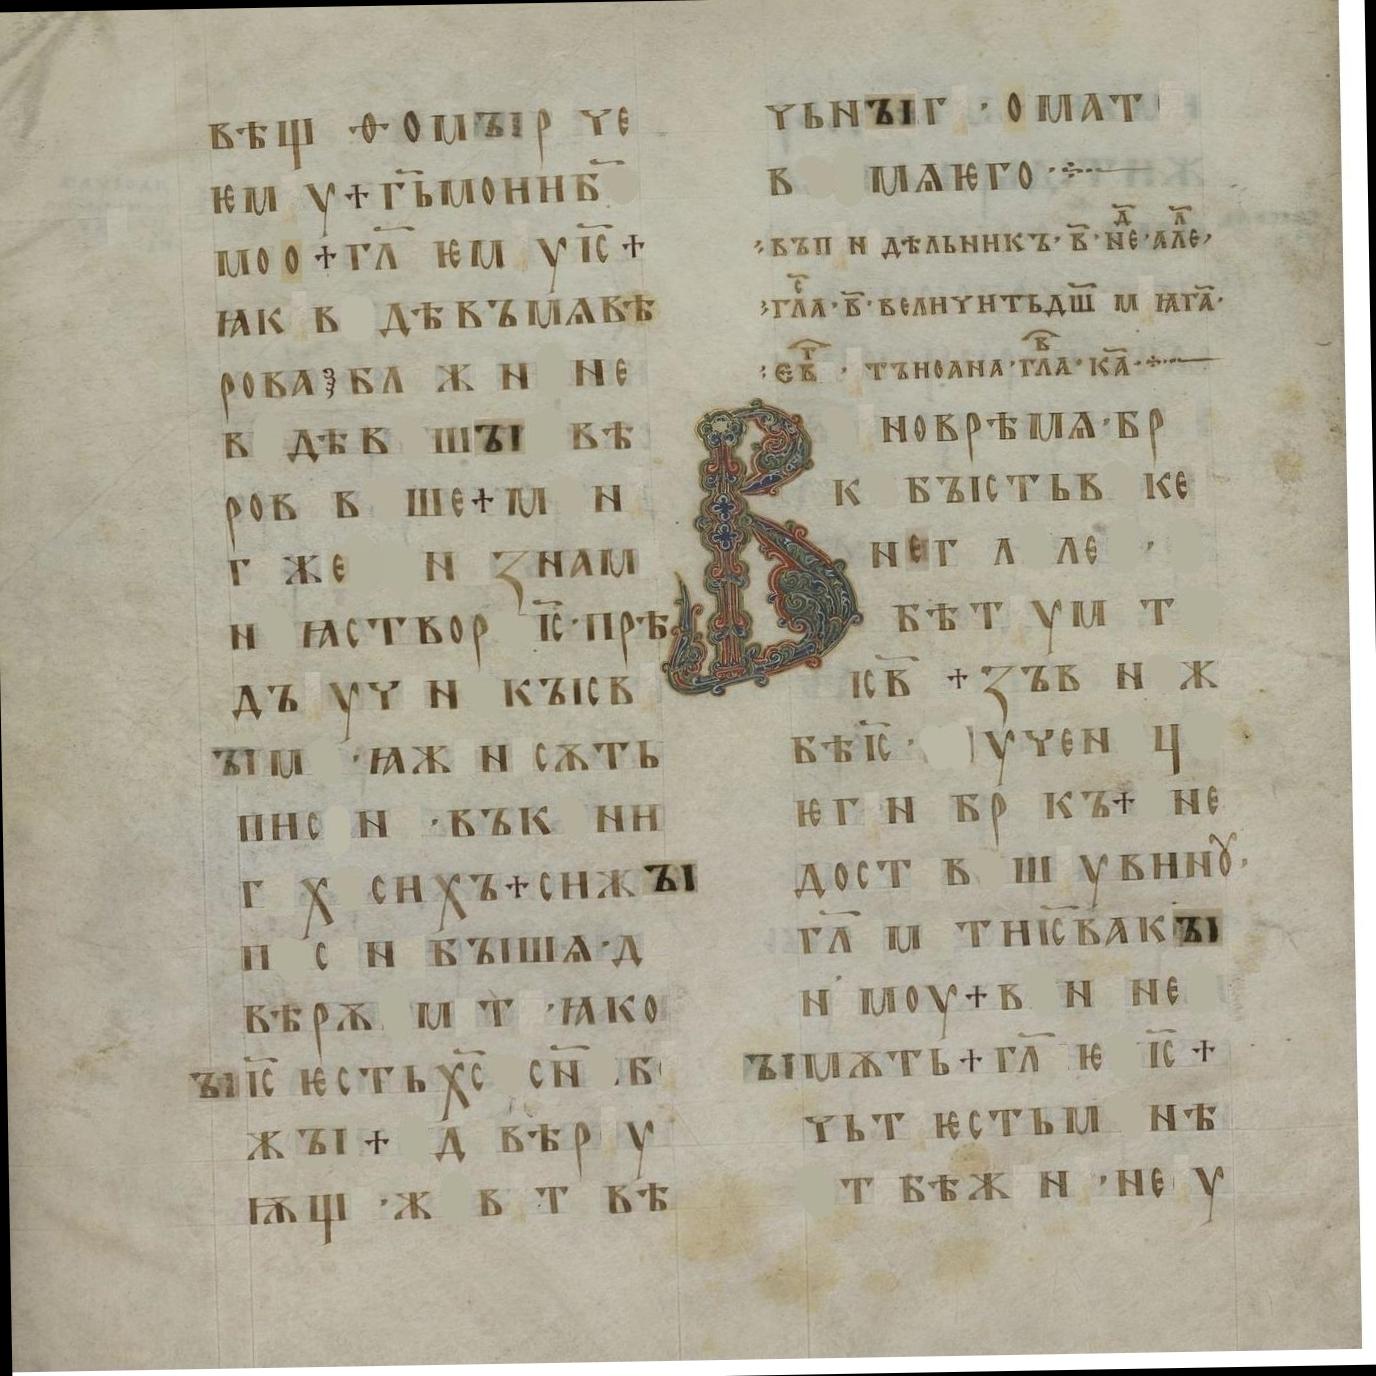 вѣщ ѳомъірче
ѥм у+гь҃моиб҃
моо+гл҃ѥм уіс҃+
ꙗк в дѣвъмѧвѣ
роваꙁбл ж н не
в дѣв шъі вѣ
ров в ше+м н
г же н ꙁнам
н ꙗствор іс҃·прѣ
дъ уч н къісв
ъім ·ꙗж н сѫть
пис н ·въкни
г х сихъ+сижъі
п с н бъішѧ·д
вѣрѫ м т ·ꙗко
ъііс҃ѥстьхс҃ сн҃ б
жъі+ д вѣр у
ѭщ ·ж в т вѣ
чьнъіг ·омат
в мѧѥго·
въп н дѣльникъ·в҃·неⷣ·алеⷧ
глⷭа·в҃·величитьдш҃ м ꙗга҃·
еⷢв · тъиоана·глⷡа·ка҃·
В новрѣмѧ·бр
к бъістьв ке
нег л ле ·
бѣт ум т
ісв҃ +ꙁъв н ж
бѣіс҃· учен ц
ѥг н бр къ+ не
дост в ш увину·
гл҃ м тиіс҃вакъі
н моу+в н не
ъімѫть+гл҃ ѥ іс҃+
чьт ѥстьм нѣ
т бѣж н ·не у